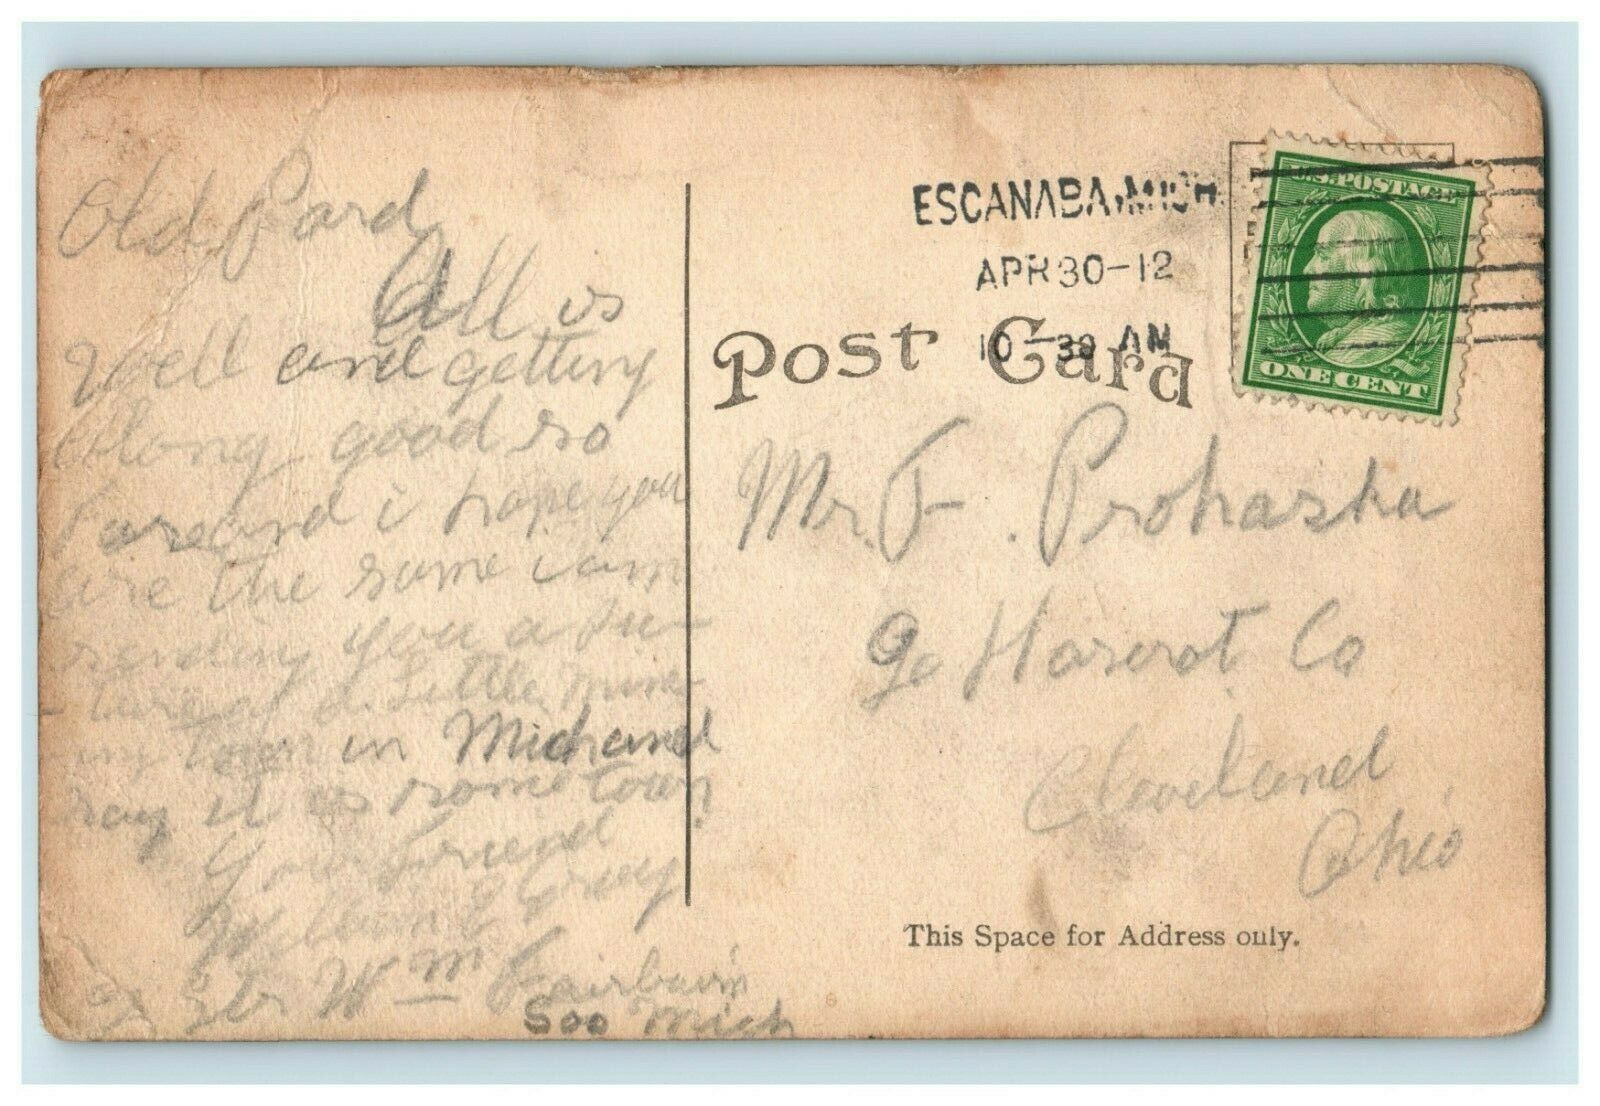 Old Pard
All is
Well and getting
along good so
far and i hope you
are the same i am
sending you a pic-
-ture of a Little min-
ing town in Mich and
say it is some town
Your Friend
Wm Fairbairn
Soo Mich
ESCANABA, MICH.
APR 30-12
10-30 AM
U.S. POSTAGE
ONE CENT
Post Card
Mr. F. Prohaska
Co
Cleveland,
Ohio
This Space for Address only.